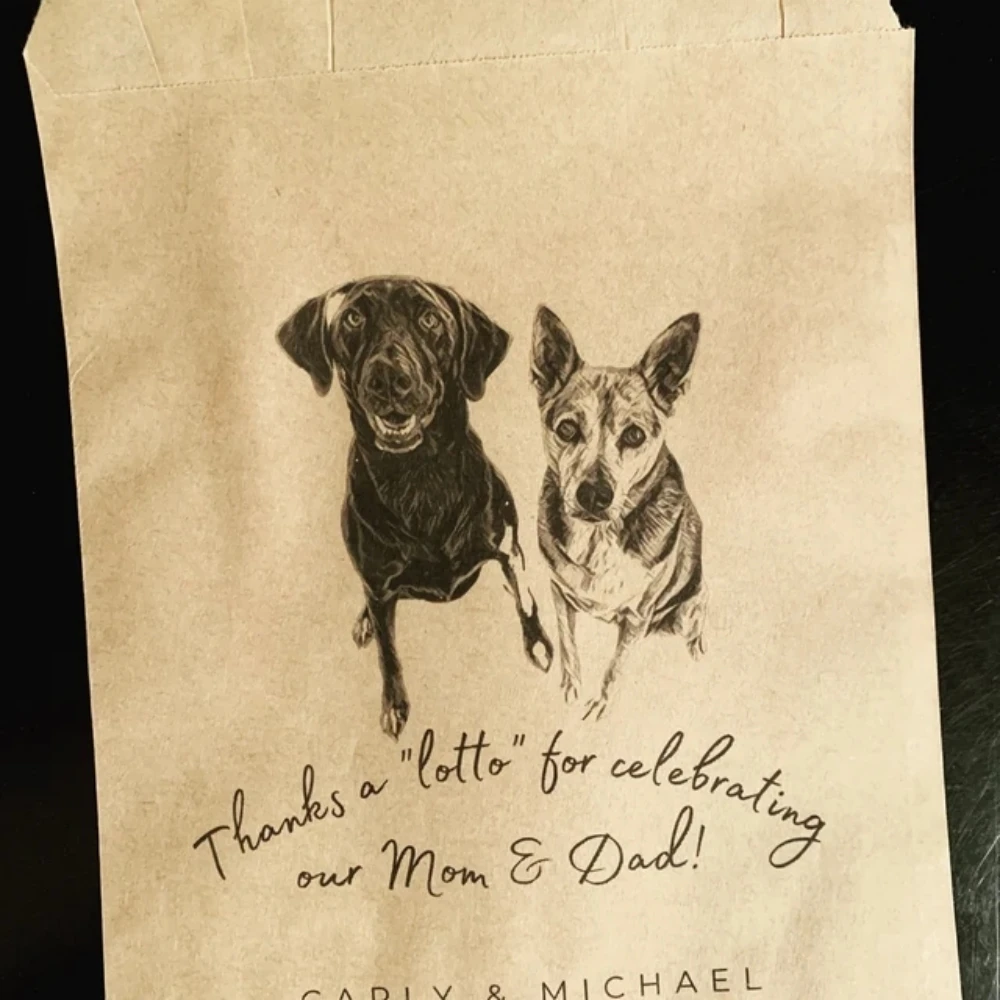 Thanks a "lotto" for celebrating
our Mom & Dad!
CARLY & MICHAEL